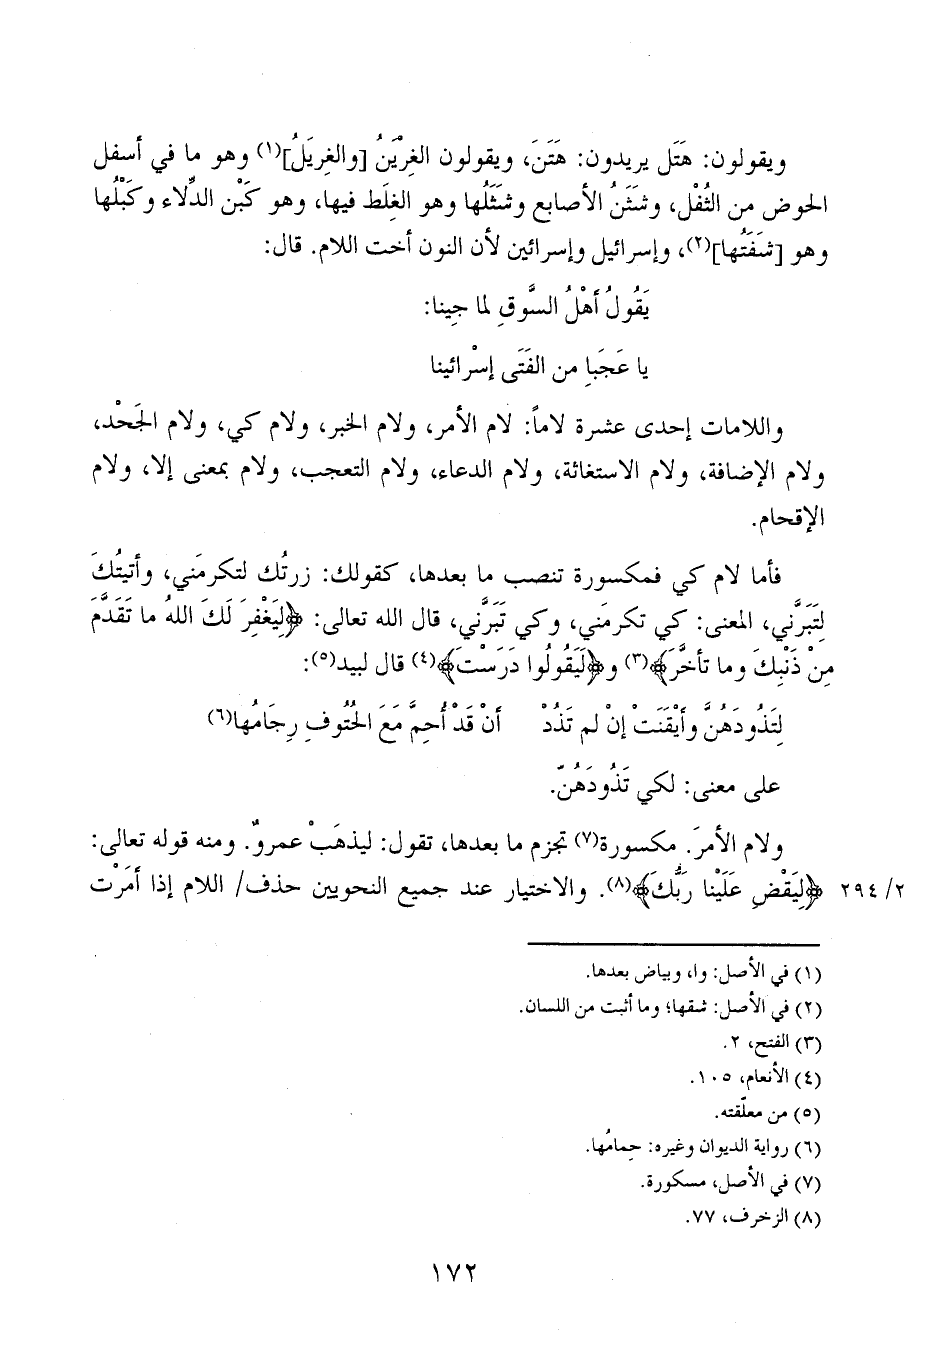 ويقولون: هَتَل يريدون: هَتَنَ، ويقولون الغِرْيَنُ [والغِريَلُ](١) وهو ما في أسفل
الحوض من الثُفْل، وشَثَنُ الأصابع وشَثَلُها وهو الغِلَظ فيها، وهو كَبْن الدِّلاء وكَبْلُها
وهو [شَفَتُها](٢)، وإسرائيل وإسرائين لأن النون أخت اللام. قال:
يَقُولُ أَهْلُ السَّوقِ لما جِينا:
يا عَجَبا من الفَتَى إسْرائينا
واللامات إحدى عشرة لاماً: لام الأمر، ولام الخبر، ولام كي، ولام الجَحْد،
ولام الإضافة، ولام الاستغاثة، ولام الدعاء، ولام التعجب، ولام بمعنى إلا، ولام
الإقحام.
فأما لام كي فمكسورة تنصب ما بعدها، كقولك: زرتُك لتكرمَني، وأتيتُكَ
لِتَبَرَّني، المعنى: كي تكرمَني، وكي تَبَرَّني، قال الله تعالى: ﴿لِيَغْفِرَ لَكَ اللهُ ما تَقَدَّمَ
مِنْ ذَنْبِكَ وما تأخَّرَ﴾(٣) و﴿لَيَقُولُوا دَرَسْتَ﴾(٤) قال لبيد(٥):
لِتَذُودَهُنَّ وأَيْقَنَتْ إنْ لم تَذُدْ أَنْ قَدْ أُحِمَّ مَعَ الحُتُوفِ رِجَامُها(٦)
على معنى: لكي تَذُودَهُنّ.
ولام الأمرَ. مكسورة(٧) تجزم ما بعدها، تقول: ليذهَبْ عمروٌ. ومنه قوله تعالى:
٢٩٤/٢ ﴿لِيَقْضِ عَلَيْنا رَبُّكَ﴾(٨). والاختيار عند جميع النحويين حذف/ اللام إذا أمَرْت
(١) في الأصل: وا، وبياض بعدها.
(٢) في الأصل: شقها؛ وما أثبت من اللسان.
(٣) الفتح، ٢.
(٤) الأنعام، ١٠٥.
(٥) من معلّقته.
(٦) رواية الديوان وغيره: حِمامُها.
(٧) في الأصل، مسكورة.
(٨) الزخرف، ٧٧.
١٧٢